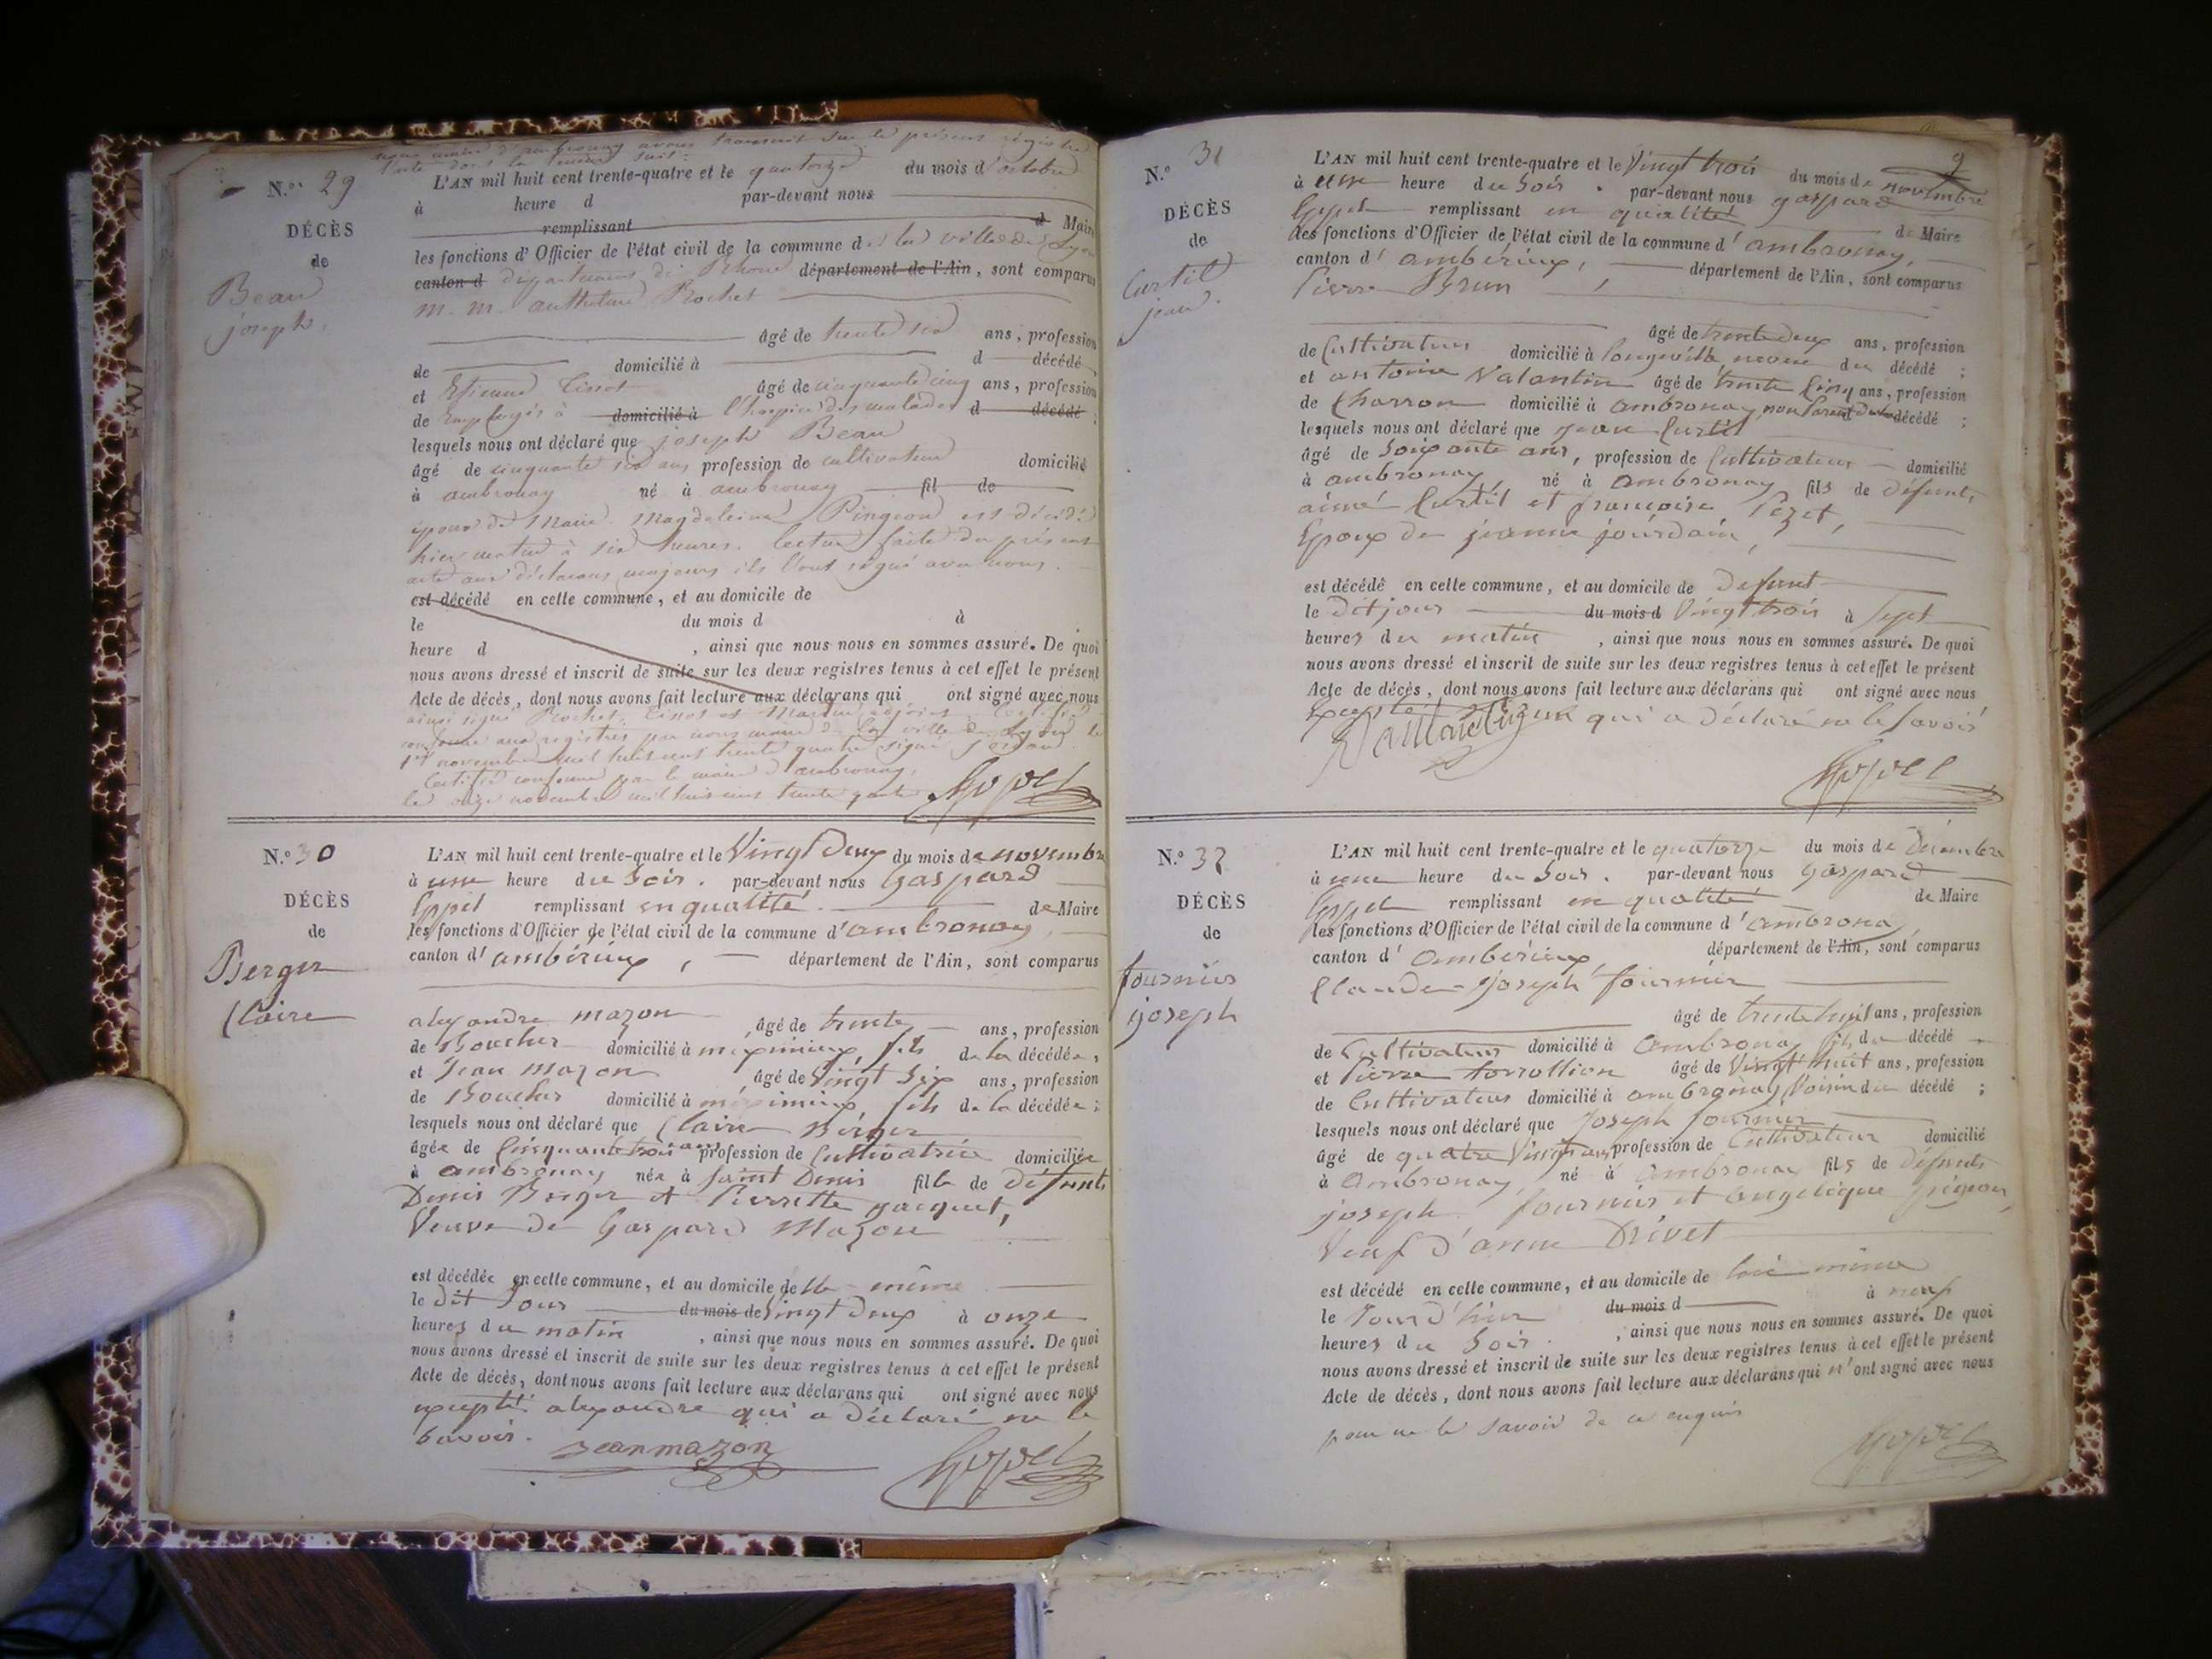 nous maire d'ambronay avons transcrit sur le présent registre
l'acte dont la teneur suit:
N.º 29
DÉCÈS
de
Beau
joseph.
L'AN mil huit cent trente-quatre et le quatorze du mois d'octobre
à heure d par-devant nous
remplissant d Maire
les fonctions d'Officier de l'état civil de la commune de la ville de Lyon
canton d département du Rhône département de l'Ain, sont comparus
m. m. anthelme Rochet
âgé de trente six ans, profession
de domicilié à d décédé
et Etienne Tissot âgé de cinquante cinq ans, profession
de Employés à domicilié à l'hospice des malades d décédé ;
lesquels nous ont déclaré que joseph Beau
âgé de cinquante six ans profession de cultivateur domicilié
à ambronay né à ambronay fil de
époux de Marie Magdeleine Pingeon est décédé
hier matin à six heures. lecture faite du présent
acte aux déclarans majeurs ils l'ont signé avec nous.
est décédé en cette commune, et au domicile de
le du mois d à
heure d , ainsi que nous nous en sommes assuré. De quoi
nous avons dressé et inscrit de suite sur les deux registres tenus à cet effet le présent
Acte de décès, dont nous avons fait lecture aux déclarans qui ont signé avec nous
ainsi signé Rochet, Tissot et Martin adjoint. Certifié
conforme aux registres par nous maire de la ville de Lyon le
1er novembre mil huit cent trente quatre signé
Certifié conforme par le maire d'ambronay,
le onze novembre mil huit cent trente quatre Eppel
N.º 30
DÉCÈS
de
Berger
Claire
L'AN mil huit cent trente-quatre et le Vingt Deux du mois de novembre
à une heure du Soir. par-devant nous Gaspard
Eppel remplissant en qualité de Maire
les fonctions d'Officier de l'état civil de la commune d'ambronay,
canton d'ambérieux, département de l'Ain, sont comparus
alexandre mazon âgé de trente ans, profession
de Boucher domicilié à méximieux, fils de la décédée,
et Jean Mazon âgé de Vingt Six ans, profession
de Boucher domicilié à méximieux, fils de la décédée ;
lesquels nous ont déclaré que Claire Berger
âgée de Cinquante trois ans profession de Cultivatrice domiciliée
à ambronay née à Saint Denis fille de Défunts
Denis Berger et Pierrette jacquet,
Veuve de Gaspard Mazon
est décédée en cette commune, et au domicile de Elle même
le dit Jour du mois de Vingt Deux à onze
heures du matin , ainsi que nous nous en sommes assuré. De quoi
nous avons dressé et inscrit de suite sur les deux registres tenus à cet effet le présent
Acte de décès, dont nous avons fait lecture aux déclarans qui ont signé avec nous
excepté alexandre qui a Déclaré ne le
Savoir. Jean mazon Eppel
9
N.º 31
DÉCÈS
de
Curtil
jean.
L'AN mil huit cent trente-quatre et le Vingt trois du mois de novembre
à une heure du Soir. par-devant nous gaspard
Eppel remplissant en qualité de Maire
des fonctions d'Officier de l'état civil de la commune d'ambronay,
canton d'ambérieux, département de l'Ain, sont comparus
Pierre Brun,
âgé de trente deux ans, profession
de Cultivateur domicilié à longeville neveu du décédé ;
et antoine Valantin âgé de trente Cinq ans, profession
de Charron domicilié à ambronay, non Parent du décédé ;
lesquels nous ont déclaré que jean Curtil
âgé de Soixante ans, profession de Cultivateur domicilié
à ambronay, né à ambronay fils de défunts
aimé Curtil et françoise Pezet,
Epoux de jeanne jourdain,
est décédé en cette commune, et au domicile de Defunt
le Dit jour du mois d Vingt trois à Sept
heures du matin , ainsi que nous nous en sommes assuré. De quoi
nous avons dressé et inscrit de suite sur les deux registres tenus à cet effet le présent
Acte de décès, dont nous avons fait lecture aux déclarans qui ont signé avec nous
Excepté qui a Déclaré ne le Savoir
Eppel
N.º 32
DÉCÈS
de
fournier
joseph
L'AN mil huit cent trente-quatre et le quatorze du mois de Décembre
à une heure du Soir. par-devant nous Gaspard
Eppel remplissant en qualité de Maire
les fonctions d'Officier de l'état civil de la commune d'ambronay
canton d'ambérieux, département de l'Ain, sont comparus
Claude joseph fournier
âgé de trente huit ans, profession
de Cultivateur domicilié à ambronay fils du décédé
et Pierre torrollion âgé de Vingt huit ans, profession
de Cultivateur domicilié à ambronay Voisin du décédé ;
lesquels nous ont déclaré que Joseph fournier
âgé de quatre Vingt ans profession de Cultivateur domicilié
à ambronay, né à ambronay fils de Défunts
joseph fournier et angelique pigeon,
Veuf d'anne Drivet
est décédé en cette commune, et au domicile de lui même
le Jour d'hier du mois d à neuf
heures du Soir , ainsi que nous nous en sommes assuré. De quoi
nous avons dressé et inscrit de suite sur les deux registres tenus à cet effet le présent
Acte de décès, dont nous avons fait lecture aux déclarans qui n'ont signé avec nous
pour ne le savoir de ce enquis
Eppel